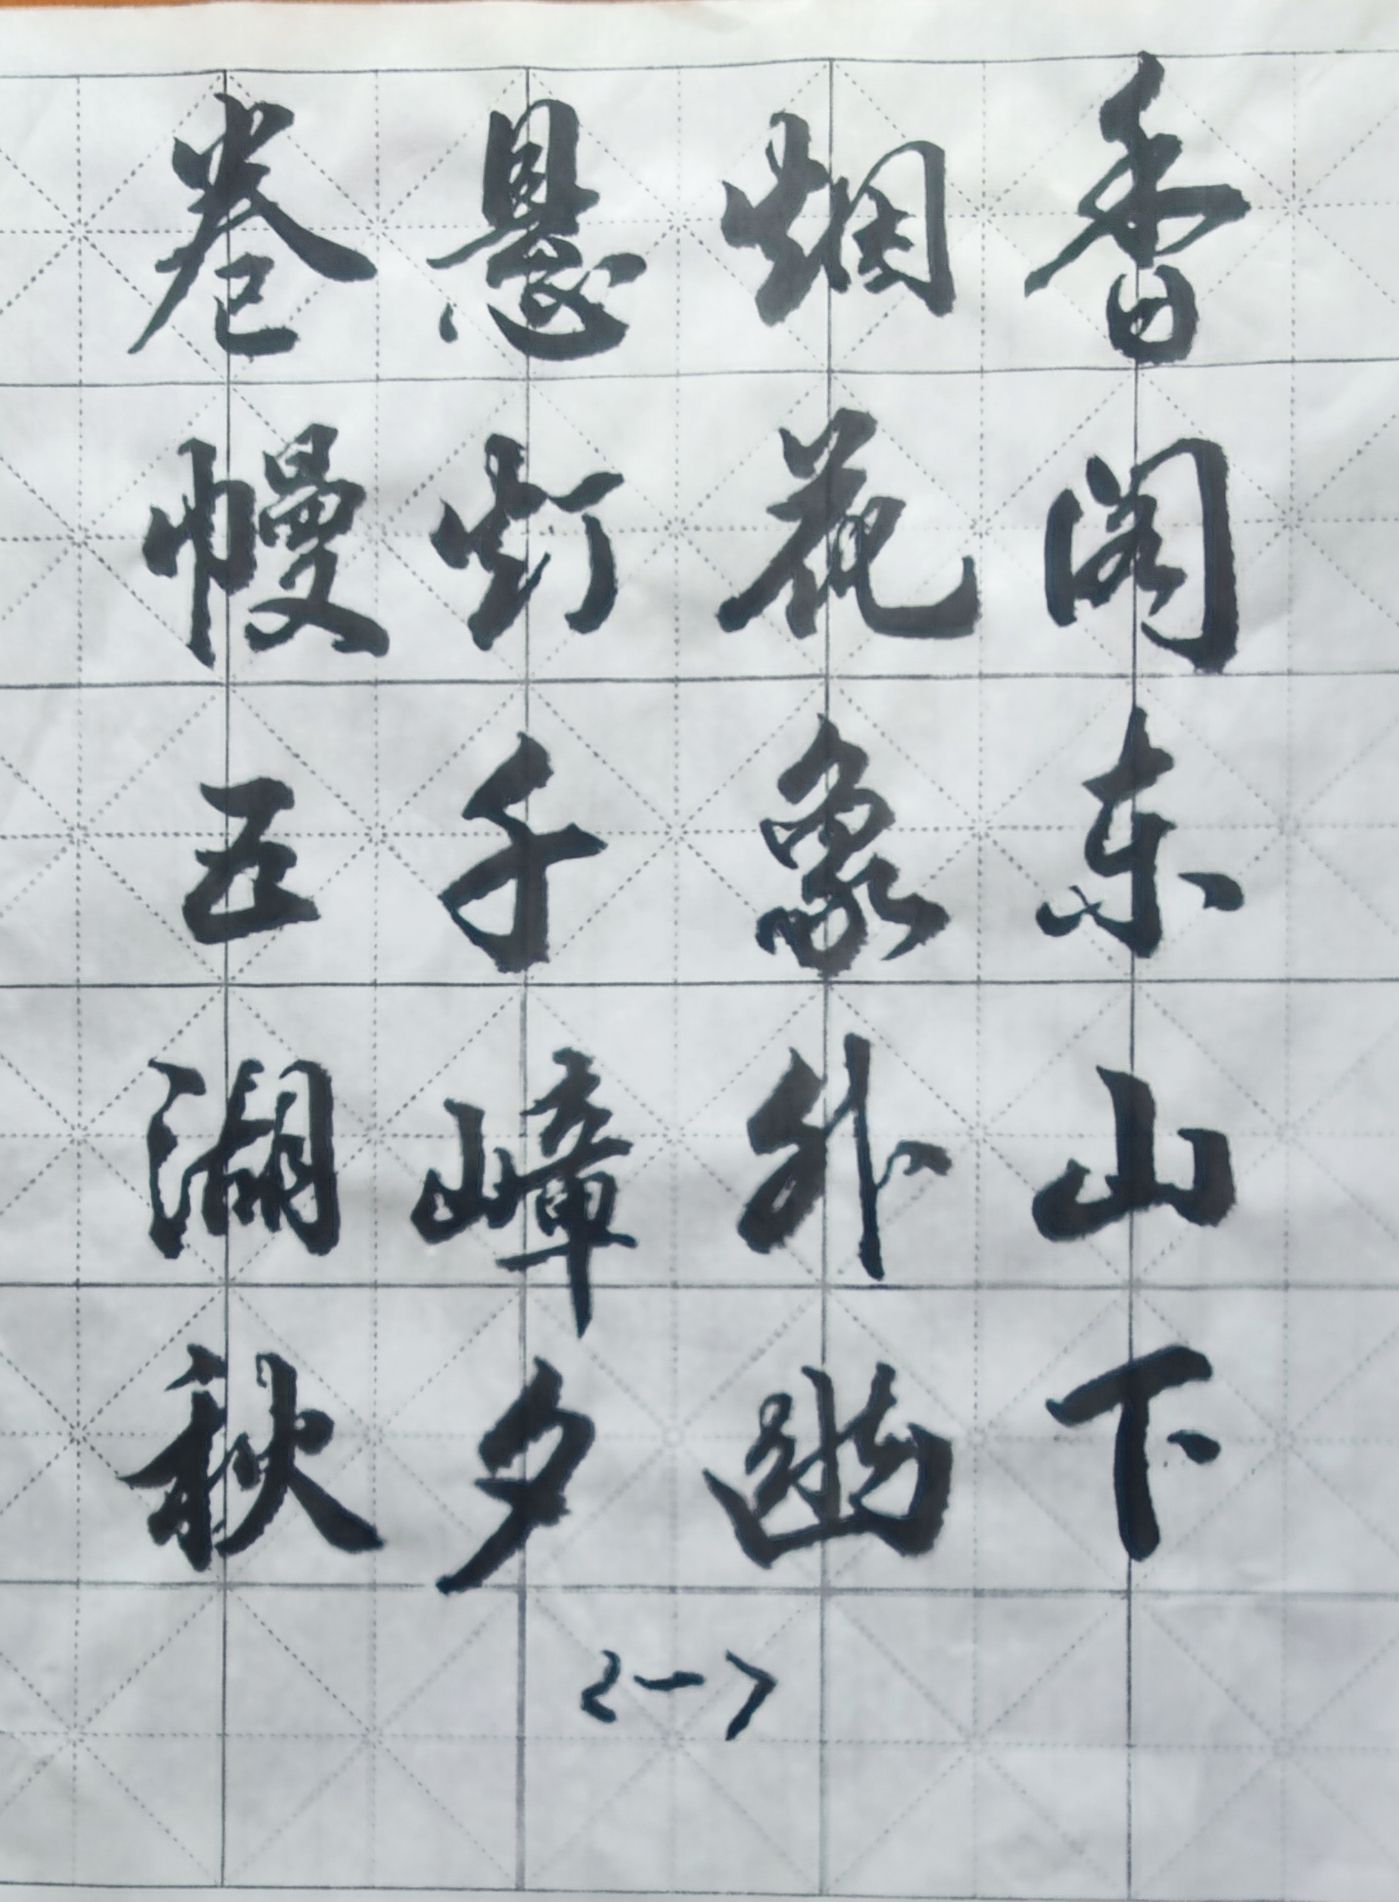 香阁东山下
烟花象外幽
悬灯千嶂夕
卷幔五湖秋
<一>